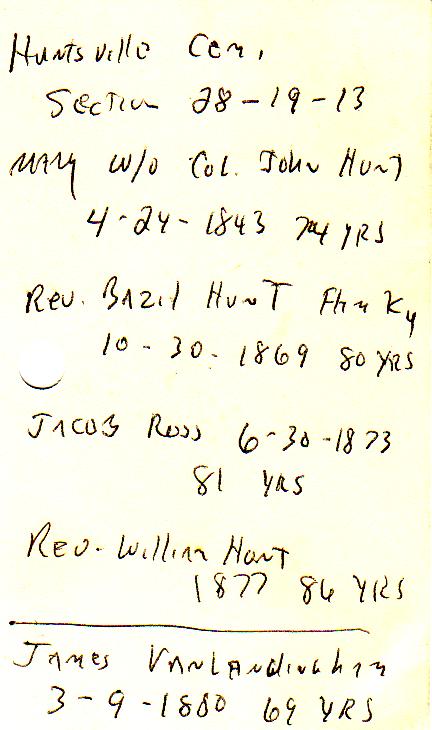 Huntsville Cem.
Section 28-19-13
Mary w/o Col. John Hunt
4-24-1843 74 YRS
Rev. Bazil Hunt Ky
10-30-1869 80 YRS
Jacob Ross 6-30-1873
81 YRS
Rev. William Hunt
1877 86 YRS
James Vanlandingham
3-9-1880 69 YRS